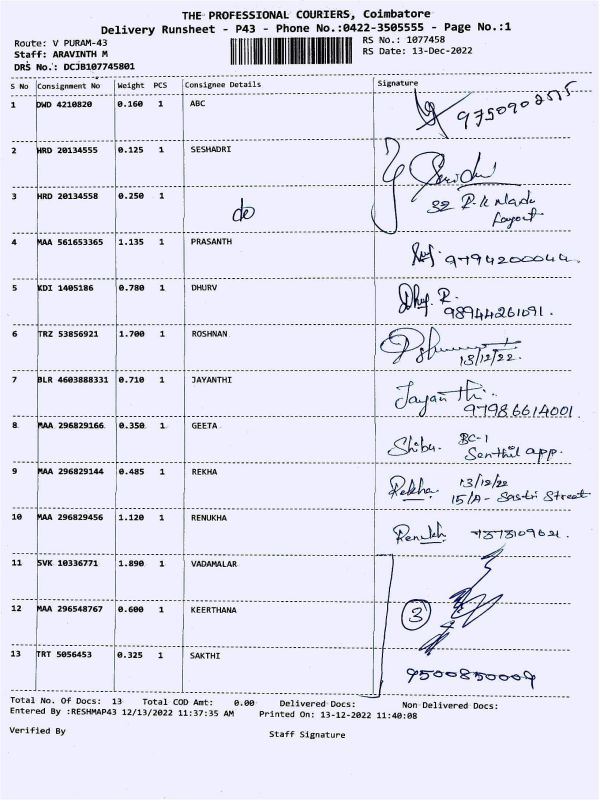 THE PROFESSIONAL COURIERS, Coimbatore
Delivery Runsheet - P43 - Phone No.:0422-3505555 - Page No.:1
Route: V PURAM-43 RS No.: 1077458
Staff: ARAVINTH M RS Date: 13-Dec-2022
DRS No.: DCJB107745801
S No Consignment No Weight PCS Consignee Details Signature
1 DWD 4210820 0.160 1 ABC
2 HRD 20134555 0.125 1 SESHADRI
3 HRD 20134558 0.250 1 do
32 R.K Nade
Layout
4 MAA 561653365 1.135 1 PRASANTH 9794200044
5 KDI 1405186 0.780 1 DHURV R.
98944261091.
6 TRZ 53856921 1.700 1 ROSHNAN
13/12/22.
7 BLR 4603888331 0.710 1 JAYANTHI Jayanthi
97986614001
8 MAA 296829166 0.350 1 GEETA Shibu. BC-1
Senthil app.
9 MAA 296829144 0.485 1 REKHA Rekha 13/12/22
15/A- Sastri Street
10 MAA 296829456 1.120 1 RENUKHA Renukh 7373109621.
11 SVK 10336771 1.890 1 VADAMALAR
12 MAA 296548767 0.600 1 KEERTHANA 3
13 TRT 5056453 0.325 1 SAKTHI
9500850009
Total No. Of Docs: 13 Total COD Amt: 0.00 Delivered Docs: Non Delivered Docs:
Entered By :RESHMAP43 12/13/2022 11:37:35 AM Printed On: 13-12-2022 11:40:08
Verified By Staff Signature